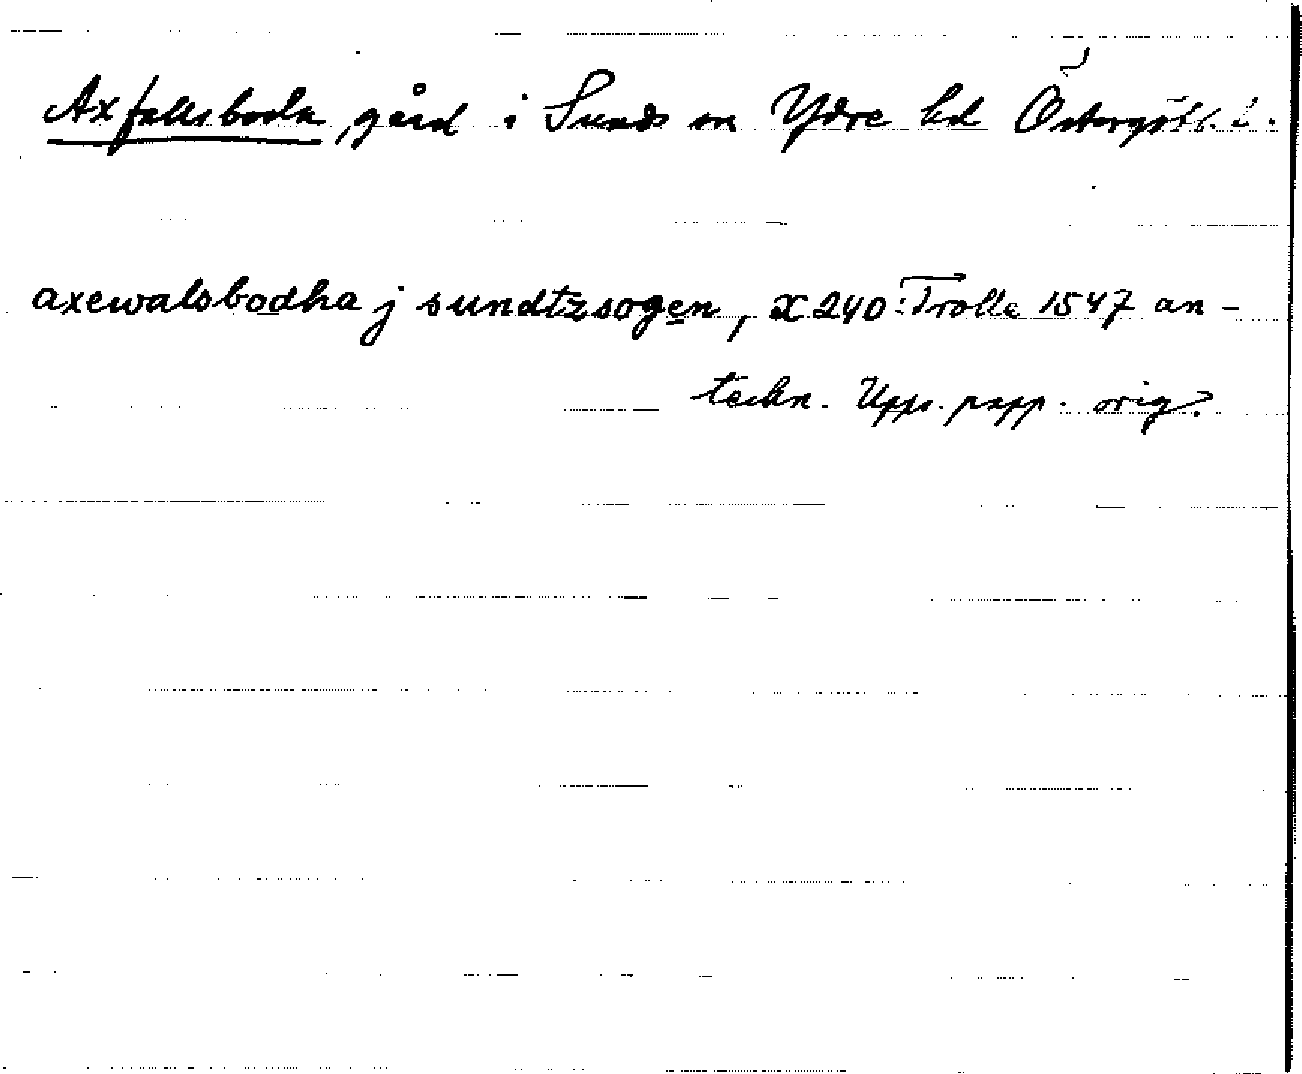 Axfallsboda, gård i Sunds sn Ydre hd Östergötl. l.
axewalsbodha j sundtzsogen, X 240: Trolle 1547 an-
teckn. Upps. papp. orig.